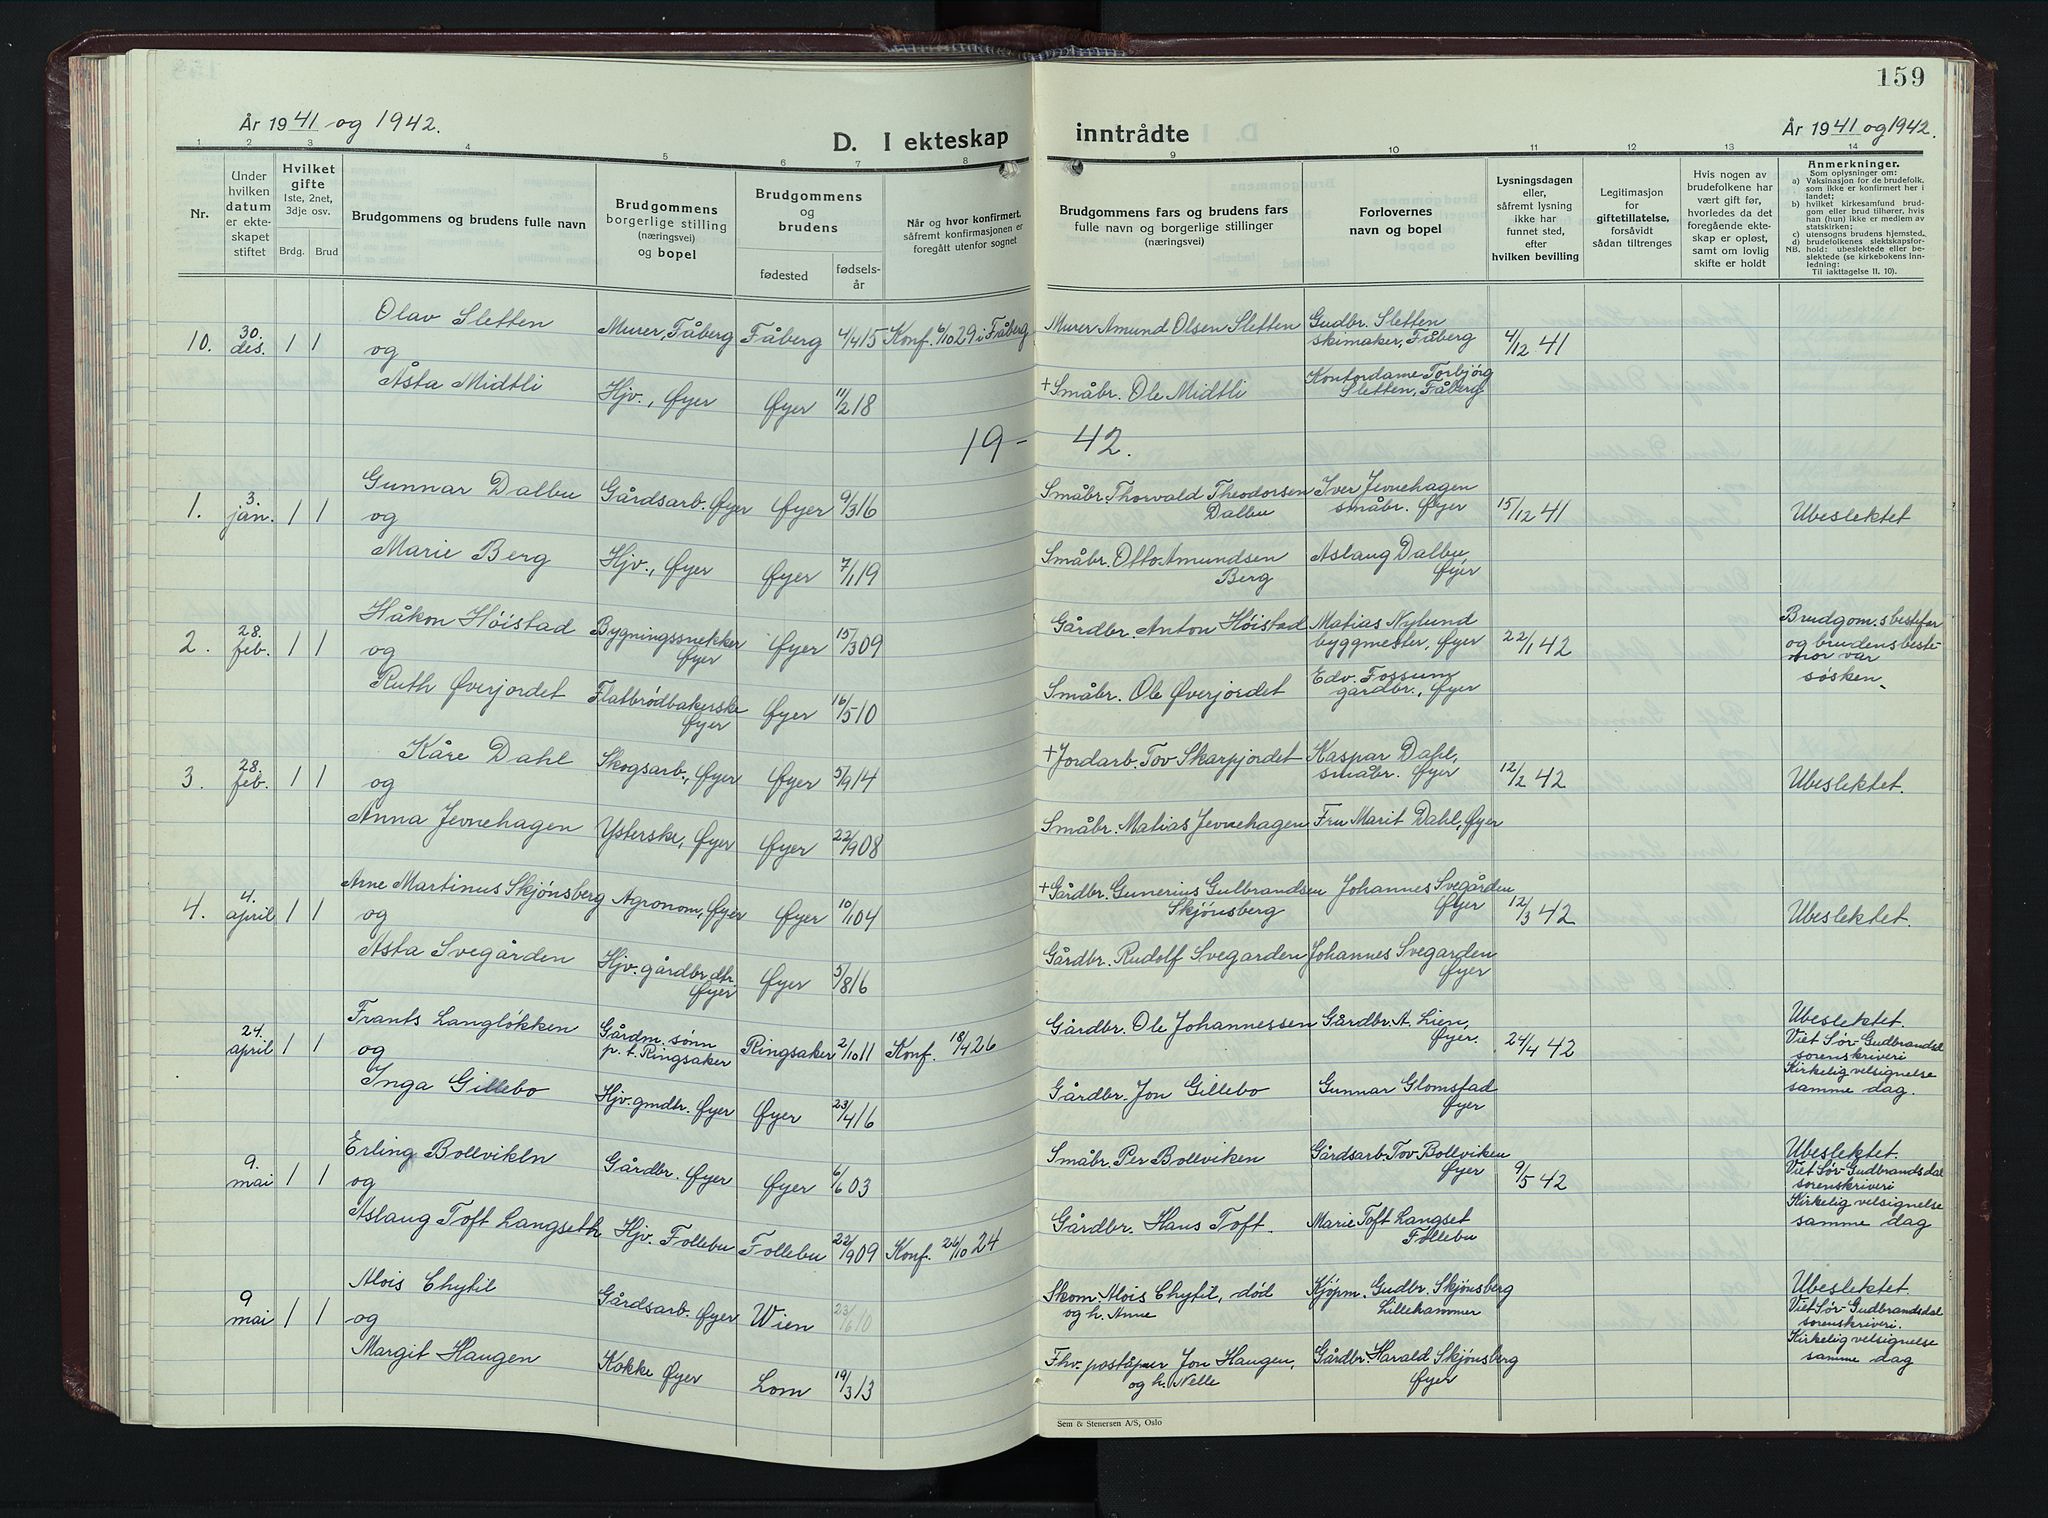 159
År 1941 og 1942.
D. I ekteskap inntrådte
År 1941 og 1942.
1 2 3 4 5 6 7 8 9 10 11 12 13 14
Nr.
Under
hvilken
datum
er ekte-
skapet
stiftet
Hvilket
gifte
Iste, 2net,
3dje osv.
Brdg. Brud
Brudgommens og brudens fulle navn
Brudgommens
borgerlige stilling
(næringsvei)
og bopel
Brudgommens
og
brudens
fødested
fødsels-
år
Når og hvor konfirmert,
såfremt konfirmasjonen er
foregått utenfor sognet
Brudgommens fars og brudens fars
fulle navn og borgerlige stillinger
(næringsvei)
Forlovernes
navn og bopel
Lysningsdagen
eller,
såfremt lysning
ikke har
funnet sted,
efter
hvilken bevilling
Legitimasjon
for
giftetillatelse,
forsåvidt
sådan tiltrenges
Hvis nogen av
brudefolkene har
vært gift før,
hvorledes da det
foregående ekte-
skap er opløst,
samt om lovlig
skifte er holdt
Anmerkninger.
Som oplysninger om:
a) Vaksinasjon for de brudefolk,
som ikke er konfirmert her i
landet;
b) hvilket kirkesamfund brud-
gom eller brud tilhører, hvis
han (hun) ikke er medlem av
statskirken;
c) utensogns brudens hjemsted.
d) brudefolkenes slektskapsfor-
NB. hold: ubeslektede eller be-
slektede (se kirkebokens inn-
ledning:
Til iakttagelse II. 10).
10. 30. des. 1 1 Olav Sletten Murer, Fåberg Fåberg 4/4 15 Konf. 6/10 29 i Fåberg Murer Amund Olsen Sletten Gudbr. Sletten
skimaker, Fåberg 4/12 41
og
Åsta Midtli Hjv., Øyer Øyer 11/2 18 + Småbr. Ole Midtli Kontordame Torbjørg
Sletten, Fåberg
19- 42.
1. 3. jan. 1 1 Gunnar Dalbu Gårdsarb. Øyer Øyer 9/3 16 Småbr. Thorvald Theodorsen
Dalbu Iver Jevnehagen
småbr. Øyer 15/12 41 Ubeslektet
og
Marie Berg Hjv., Øyer Øyer 7/1 19 Småbr. Otto Amundsen
Berg Aslaug Dalbu,
Øyer
2. 28. feb. 1 1 Håkon Høistad Bygningssnekker
Øyer Øyer 15/3 09 Gårdbr. Anton Høistad Matias Nylund
byggmester, Øyer 22/1 42 Brudgom.s bestefar
og brudens beste-
mor var
søsken.
og
Ruth Øverjordet Flatbrødbakerske
Øyer Øyer 16/5 10 Småbr. Ole Øverjordet Edv. Fossum
gårdbr., Øyer
3. 28. feb. 1 1 Kåre Dahl Skogsarb., Øyer Øyer 5/9 14 + Jordarb. Tov Skarpjordet Kaspar Dahl,
småbr. Øyer 12/2 42 Ubeslektet.
og
Anna Jevnehagen Ysterske, Øyer Øyer 22/9 08 Småbr. Matias Jevnehagen Fru Marit Dahl, Øyer
4. 4. april 1 1 Arne Martinus Skjønsberg Agronom, Øyer Øyer 10/1 04 + Gårdbr. Gunerius Gulbrandsen
Skjønsberg Johannes Svegården
Øyer 12/3 42 Ubeslektet.
og
Asta Svegården Hjv. gårdbr.dtr.
Øyer Øyer 5/8 16 Gårdbr. Rudolf Svegarden Johannes Svegarden
Øyer
24. april 1 1 Frants Langløkken Gårdm. sønn
p.t. Ringsaker Ringsaker 2/10 11 Konf. 18/4 26 Gårdbr. Ole Johannessen Gårdbr. A. Lien,
Øyer. 24/4 42 Ubeslektet.
Viet Sør-Gudbrandsdal
sorenskriveri
Kirkelig velsignelse
samme dag.
og
Inga Gillebo Hjv. gmdbr. Øyer Øyer 23/4 16 Gårdbr. Jon Gillebo Gunnar Glomstad
Øyer
9. mai 1 1 Erling Bollvikln Gårdbr. Øyer Øyer 6/6 03 Småbr. Per Bollviken Gårdsarb. Tov Bollviken
Øyer 9/5 42 Ubeslektet.
Viet Sør-Gudbrandsdal
sorenskriveri
Kirkelig velsignelse
samme dag
og
Aslaug Toft Langseth Hjv. Follebu Follebu 22/9 09 Konf. 26/10 24 Gårdbr. Hans Toft. Marie Toft Langset
Follebu
9 mai 1 1 Alois Chytil Gårdsarb. Øyer Wien 23/6 10 Skom. Alois Chytil, død
og h. Anne Kjøpm. Gudbr. Skjønsberg
Lillehammer Ubeslektet.
Viet Sør-Gudbrandsdal
sorenskriveri.
Kirkelig velsignelse
samme dag
og
Margit Haugen Kokke Øyer Lom 19/3 13 Fhv. poståpner Jon Haugen,
og h. Nelle Gårdbr. Harald Skjønsberg
Øyer
Sem & Stenersen A/S, Oslo